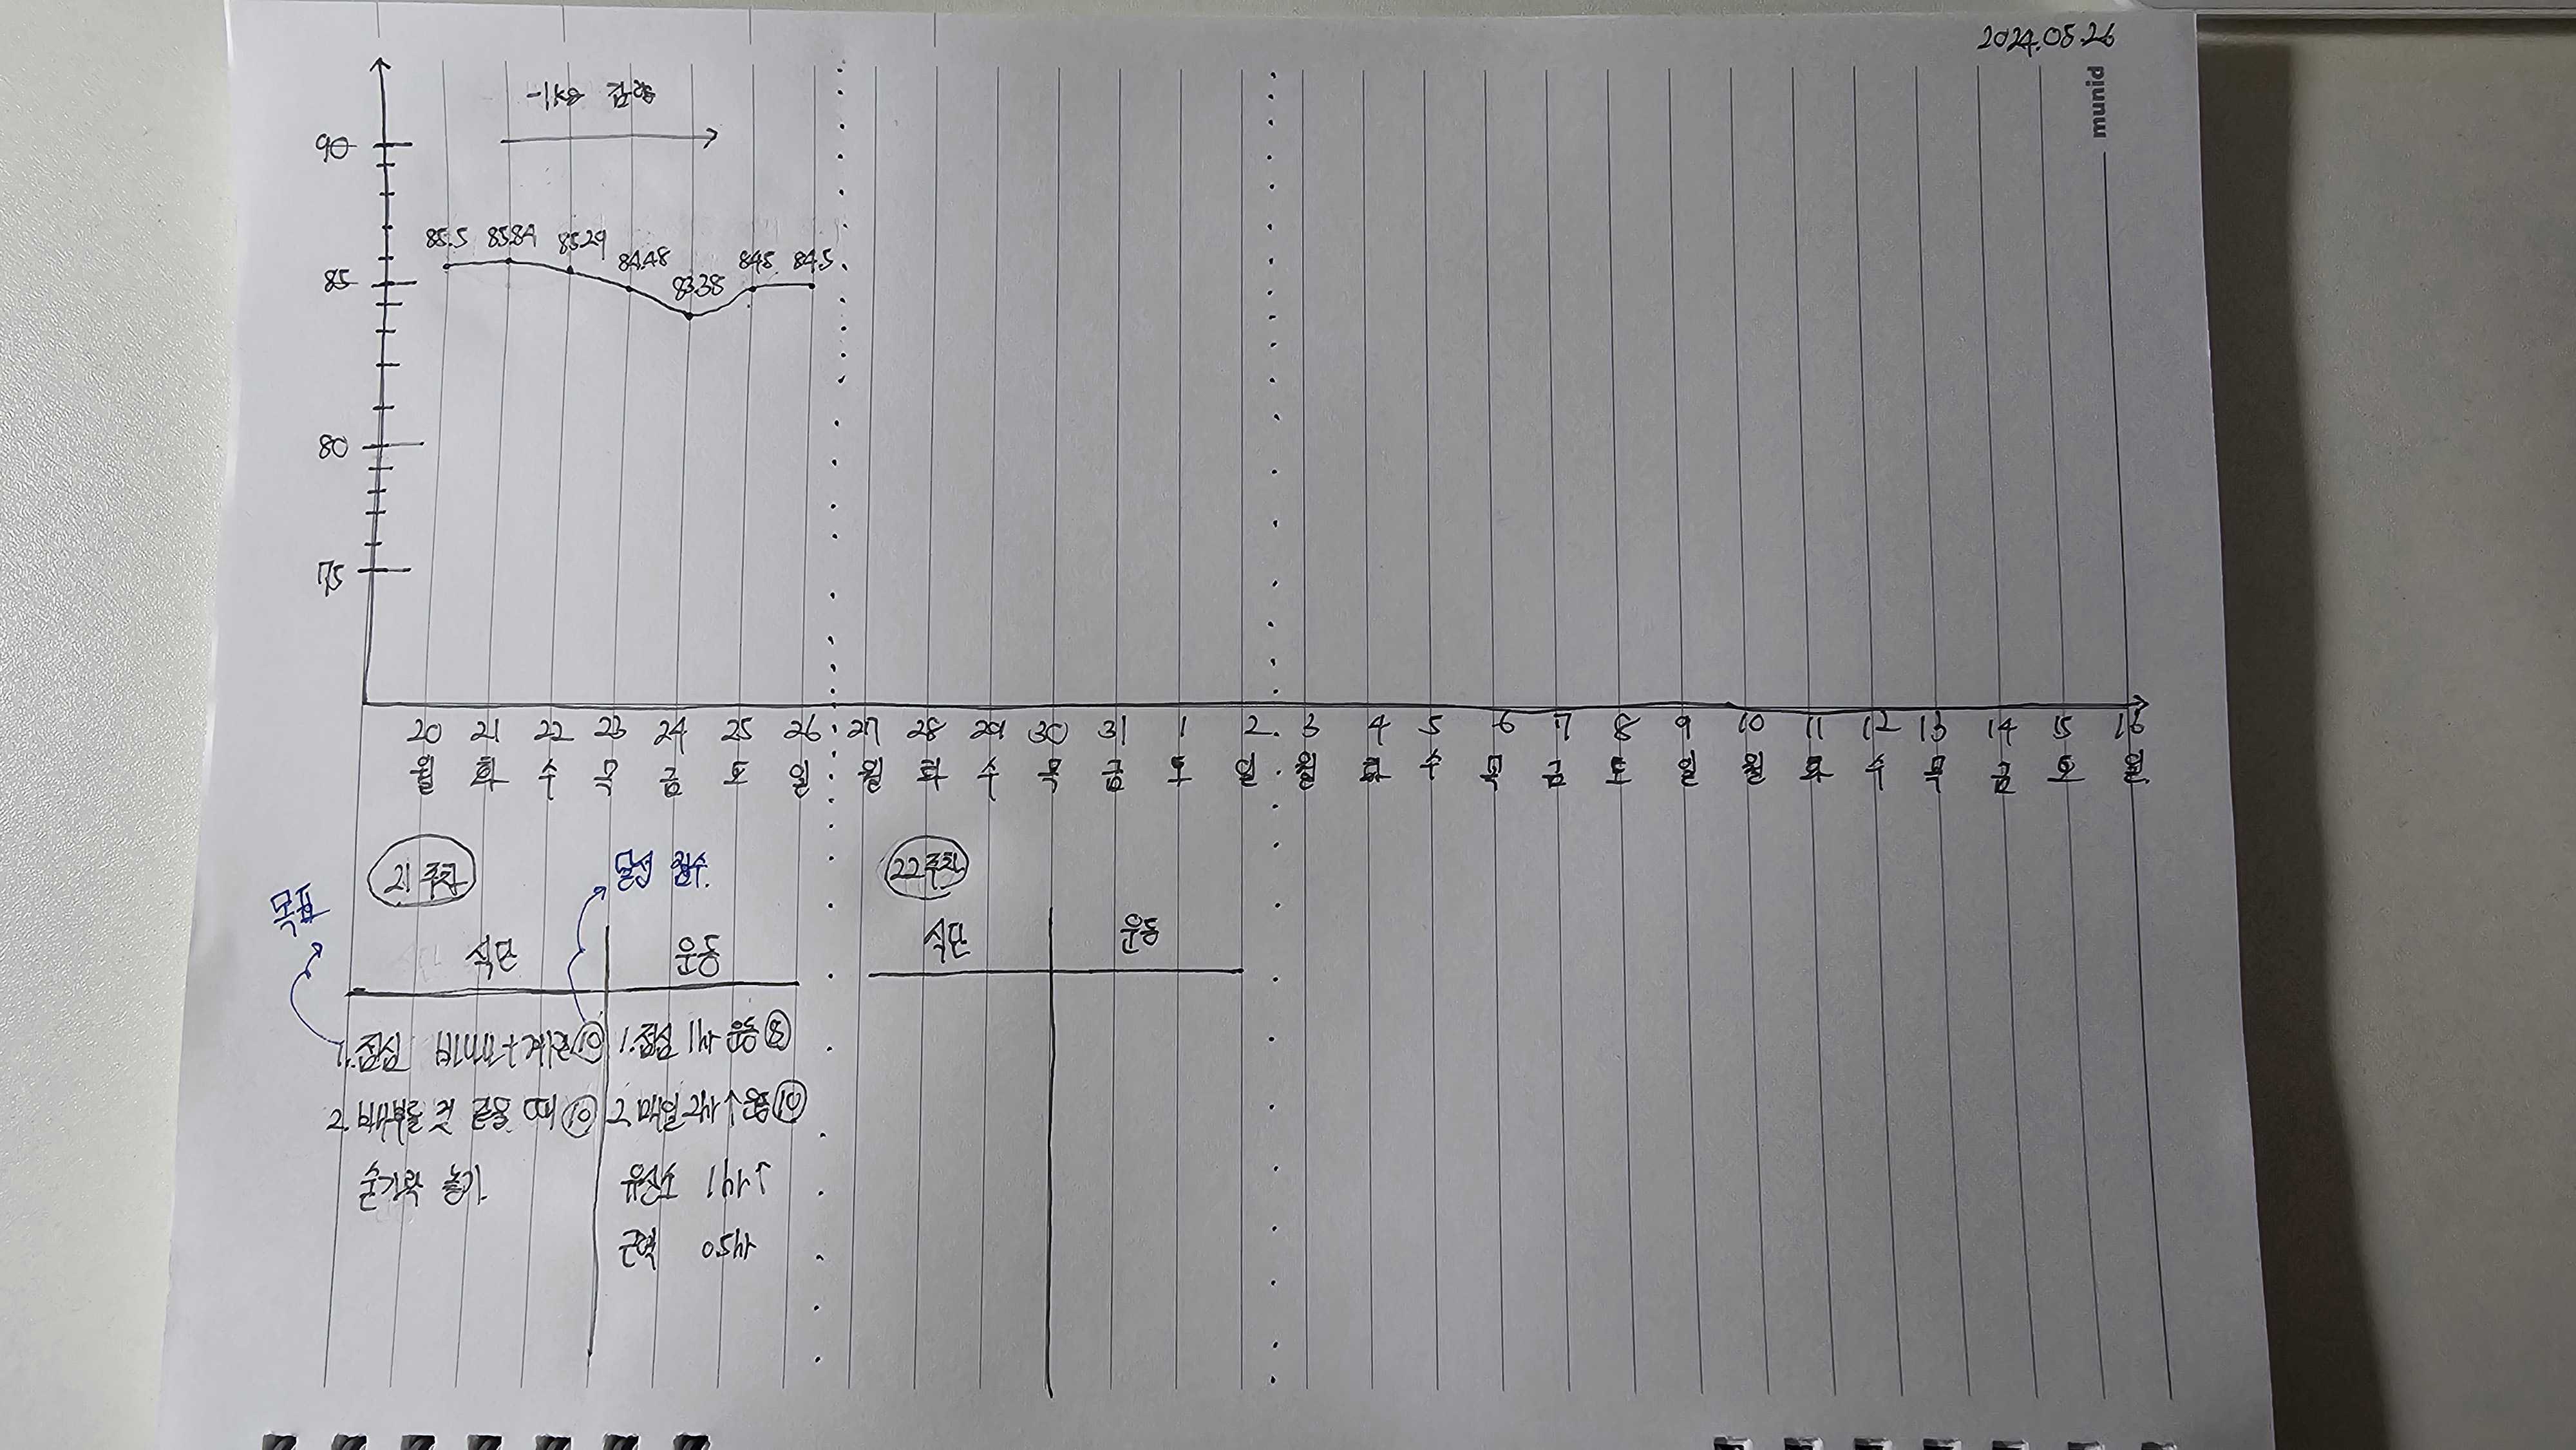 2024.05.26
munid
-1kg 감량
90
85.5 85.84 85.29 84.48 83.38 84.5 84.5
85
80
75
20 21 22 23 24 25 26 27 28 29 30 31 1 2 3 4 5 6 7 8 9 10 11 12 13 14 15 16
월 화 수 목 금 토 일 월 화 수 목 금 토 일 월 화 수 목 금 토 일 월 화 수 목 금 토 일
21주차
달성 점수
22주차
목표
식단 운동
식단 운동
1. 점심 바나나+계란 10
1. 점심 1hr 운동 8
2. 배부를 것 같을 때 10
숟가락 놓기
2. 매일 2hr↑ 운동 10
유산소 1hr↑
근력 0.5hr